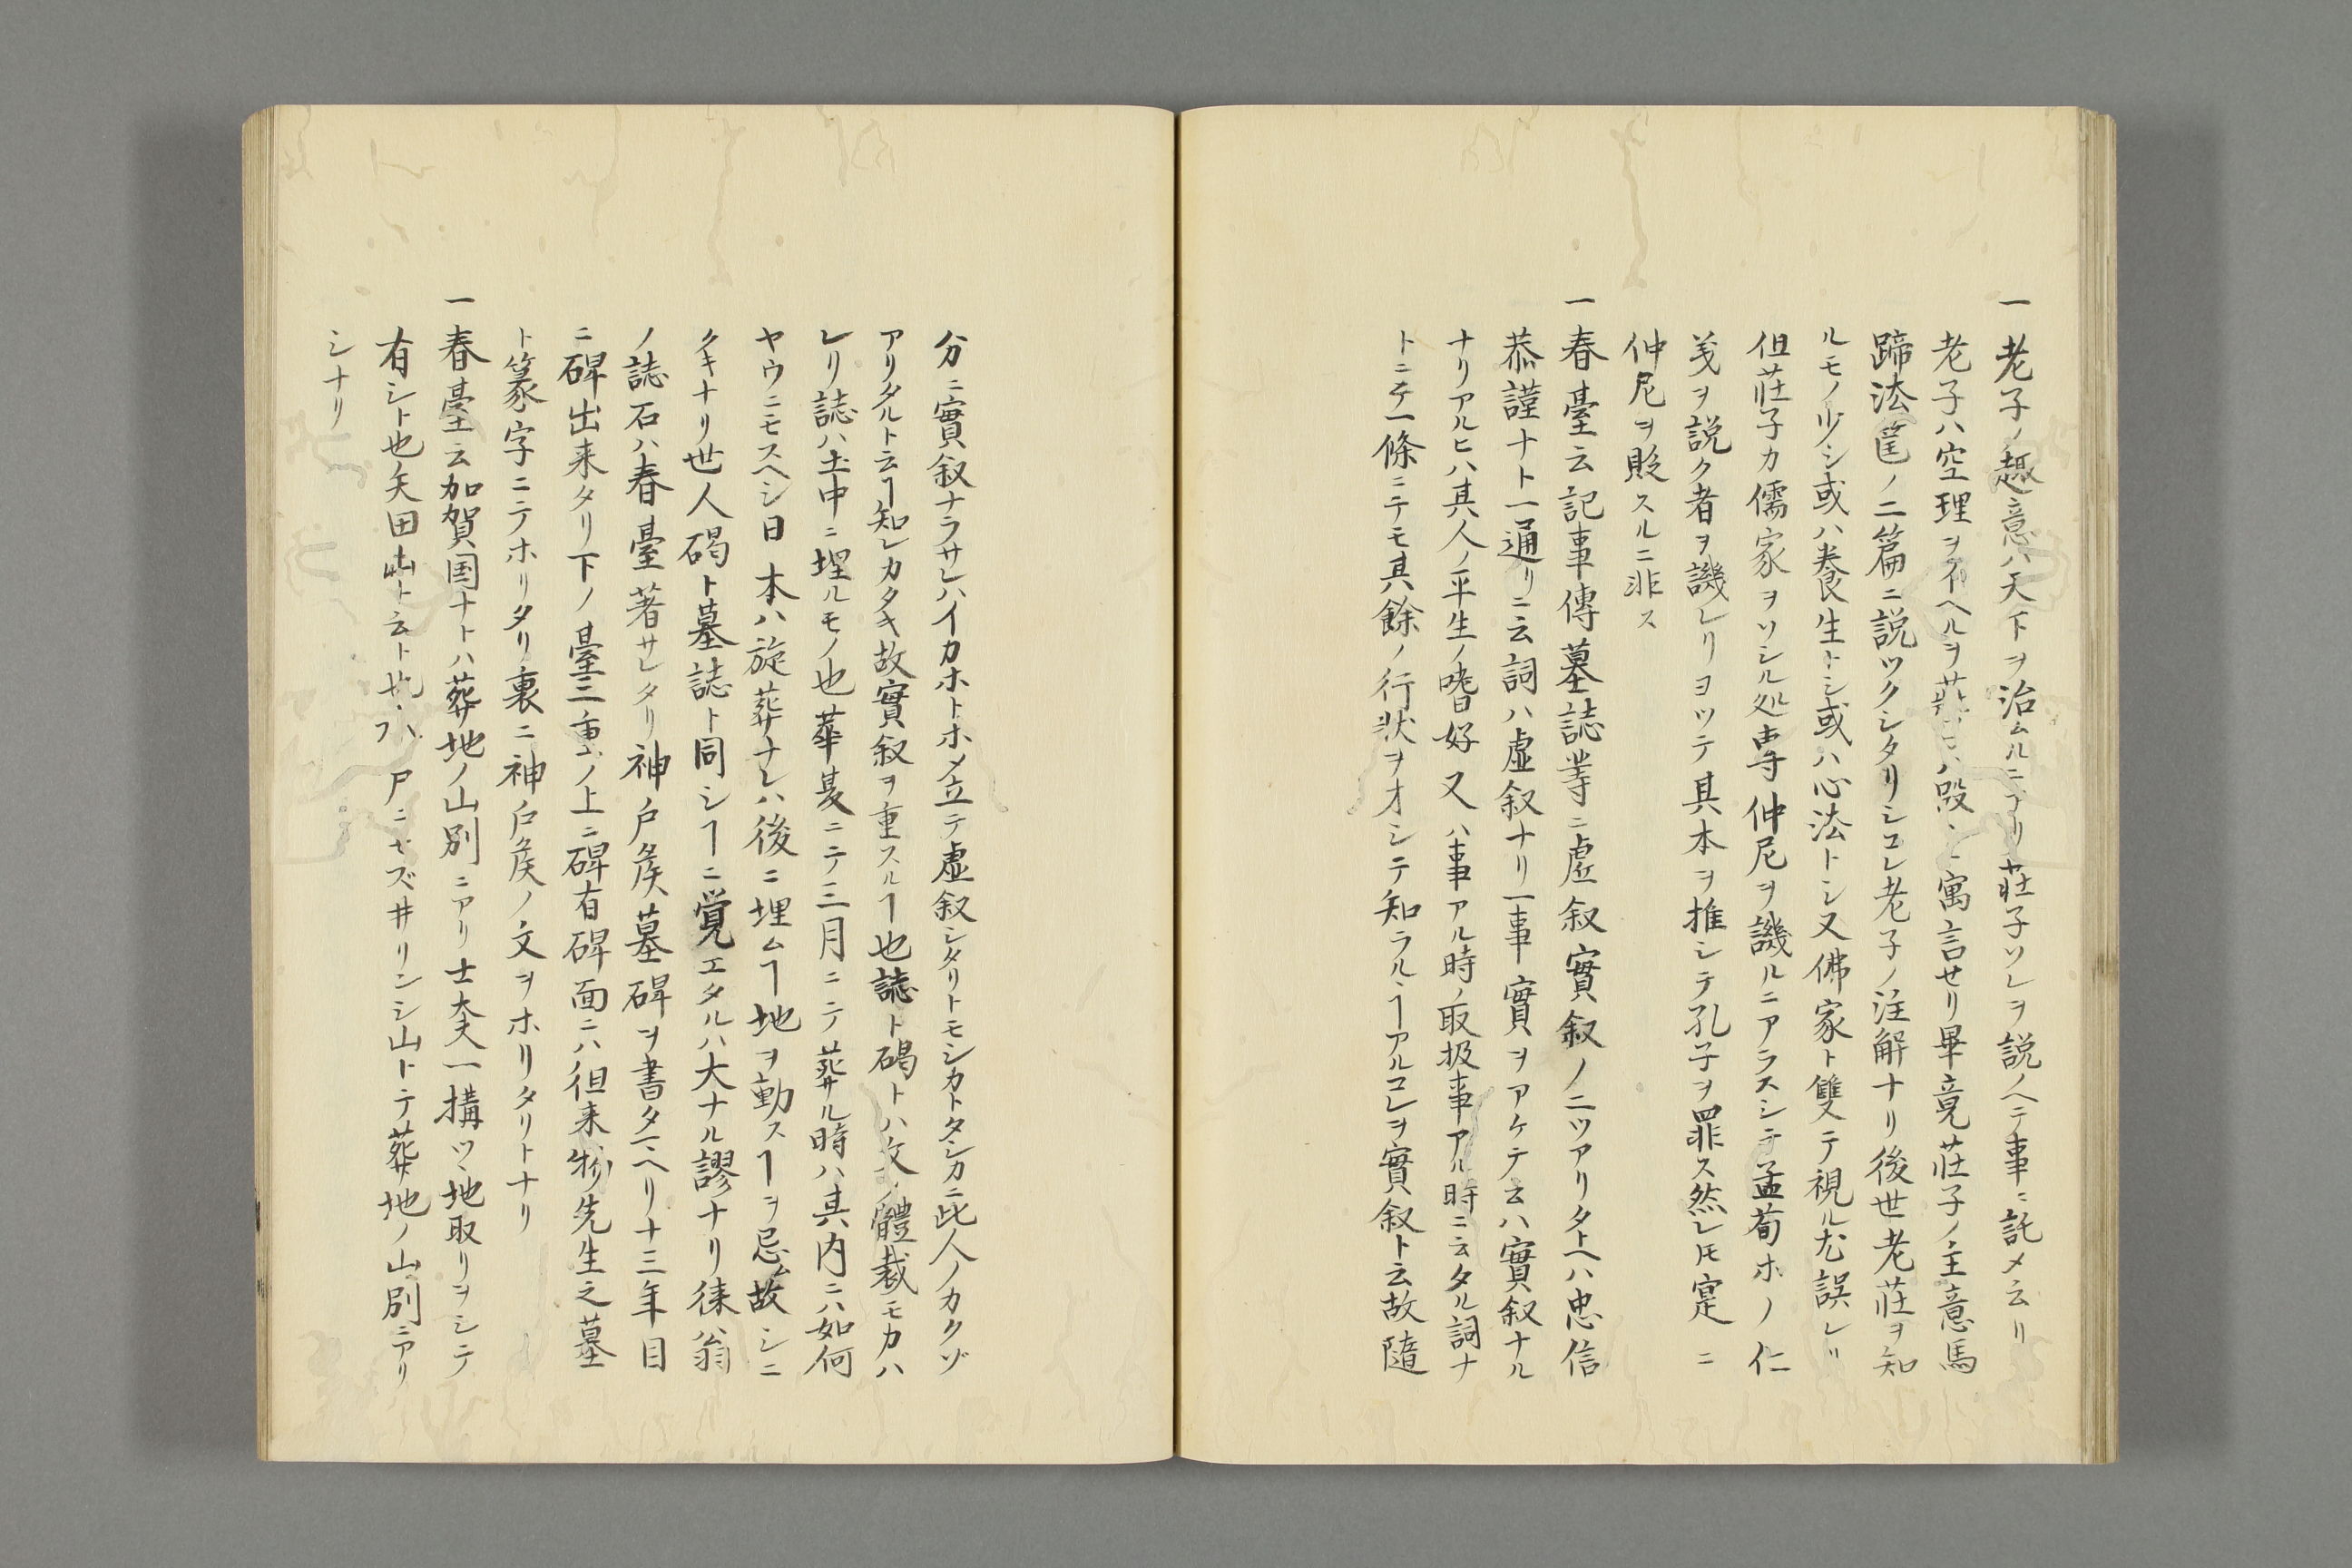 一老子ノ趣意ハ天下ヲ治ムルニアリ莊子ソレヲ説ノヘテ事ニ託メ云リ
老子ハ空理ヲイヘルヲ莊子ハ殴シ寓言せリ畢竟莊子ノ主意馬
蹄法筐ノ二篇ニ説ツクシタリシコレ老子ノ注解ナリ後世老莊ヲ知
ルモノ少シ或ハ養生トシ或ハ心法トシ又佛家ト雙テ視ル尤誤レリ
但莊子カ儒家ヲソシル処専仲尼ヲ譏ルニアラスシテ孟荀ホノ仁
義ヲ説ク者ヲ譏レリヨツテ其本ヲ推シテ孔子ヲ罪ス然レ𪜈寔ニ
仲尼ヲ貶スルニ非ス
一春臺云記事傳墓誌䓁ニ虚叙實叙ノ二ツアリタトヘハ忠信
恭謹ナト一通リニ云詞ハ虚叙ナリ一事實ヲアケテ云ハ實叙ナル
ナリアルヒハ其人ノ平生ノ嗜好又ハ事アル時ノ取扱事アル時ニ云タル詞ナ
トニテ一條ニテモ其餘ノ行状ヲオシテ知ラルヽヿアルコレヲ實叙ト云故隨
分ニ實叙ナラサレハイカホトホメ立テ虚叙シタリトモシカトタシカニ此人ノカクゾ
アリタルト云ヿ知レカタキ故實叙ヲ重スルヿ也誌ト碣トハ文ノ體裁モカハ
レリ誌ハ土中ニ埋ルモノ也華夏ニテ三月ニテ葬ル時ハ其内ニハ如何
ヤウニモスヘシ日本ハ旋葬ナレハ後ニ埋ムヿ地ヲ動スヿヲ忌ム故シニ
クキナリ世人碣ト墓誌ト同シヿニ覚エタルハ大ナル謬ナリ徠翁
ノ誌石ハ春臺著サレタリ神戸矦墓碑ヲ書タヘリ十三年目
ニ碑出来タリ下ノ臺三重ノ上ニ碑有碑面ニハ徂来物先生之墓
ト篆字ニテホリタリ裏ニ神戸矦ノ文ヲホリタリトナリ
一春臺云加賀国ナトハ葬地ノ山別ニアリ士大夫一搆ツヽ地取リヲシテ
有シト也矢田山ト云ト也 尸ニセズ井リンシ山トテ葬地ノ山別ニアリ
シナリ